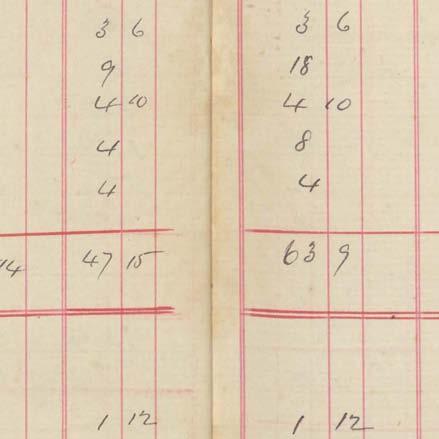 3 6 3 6
9 18
4 10 4 10
4 8
4 4
14 47 15 63 9
1 12 1 12